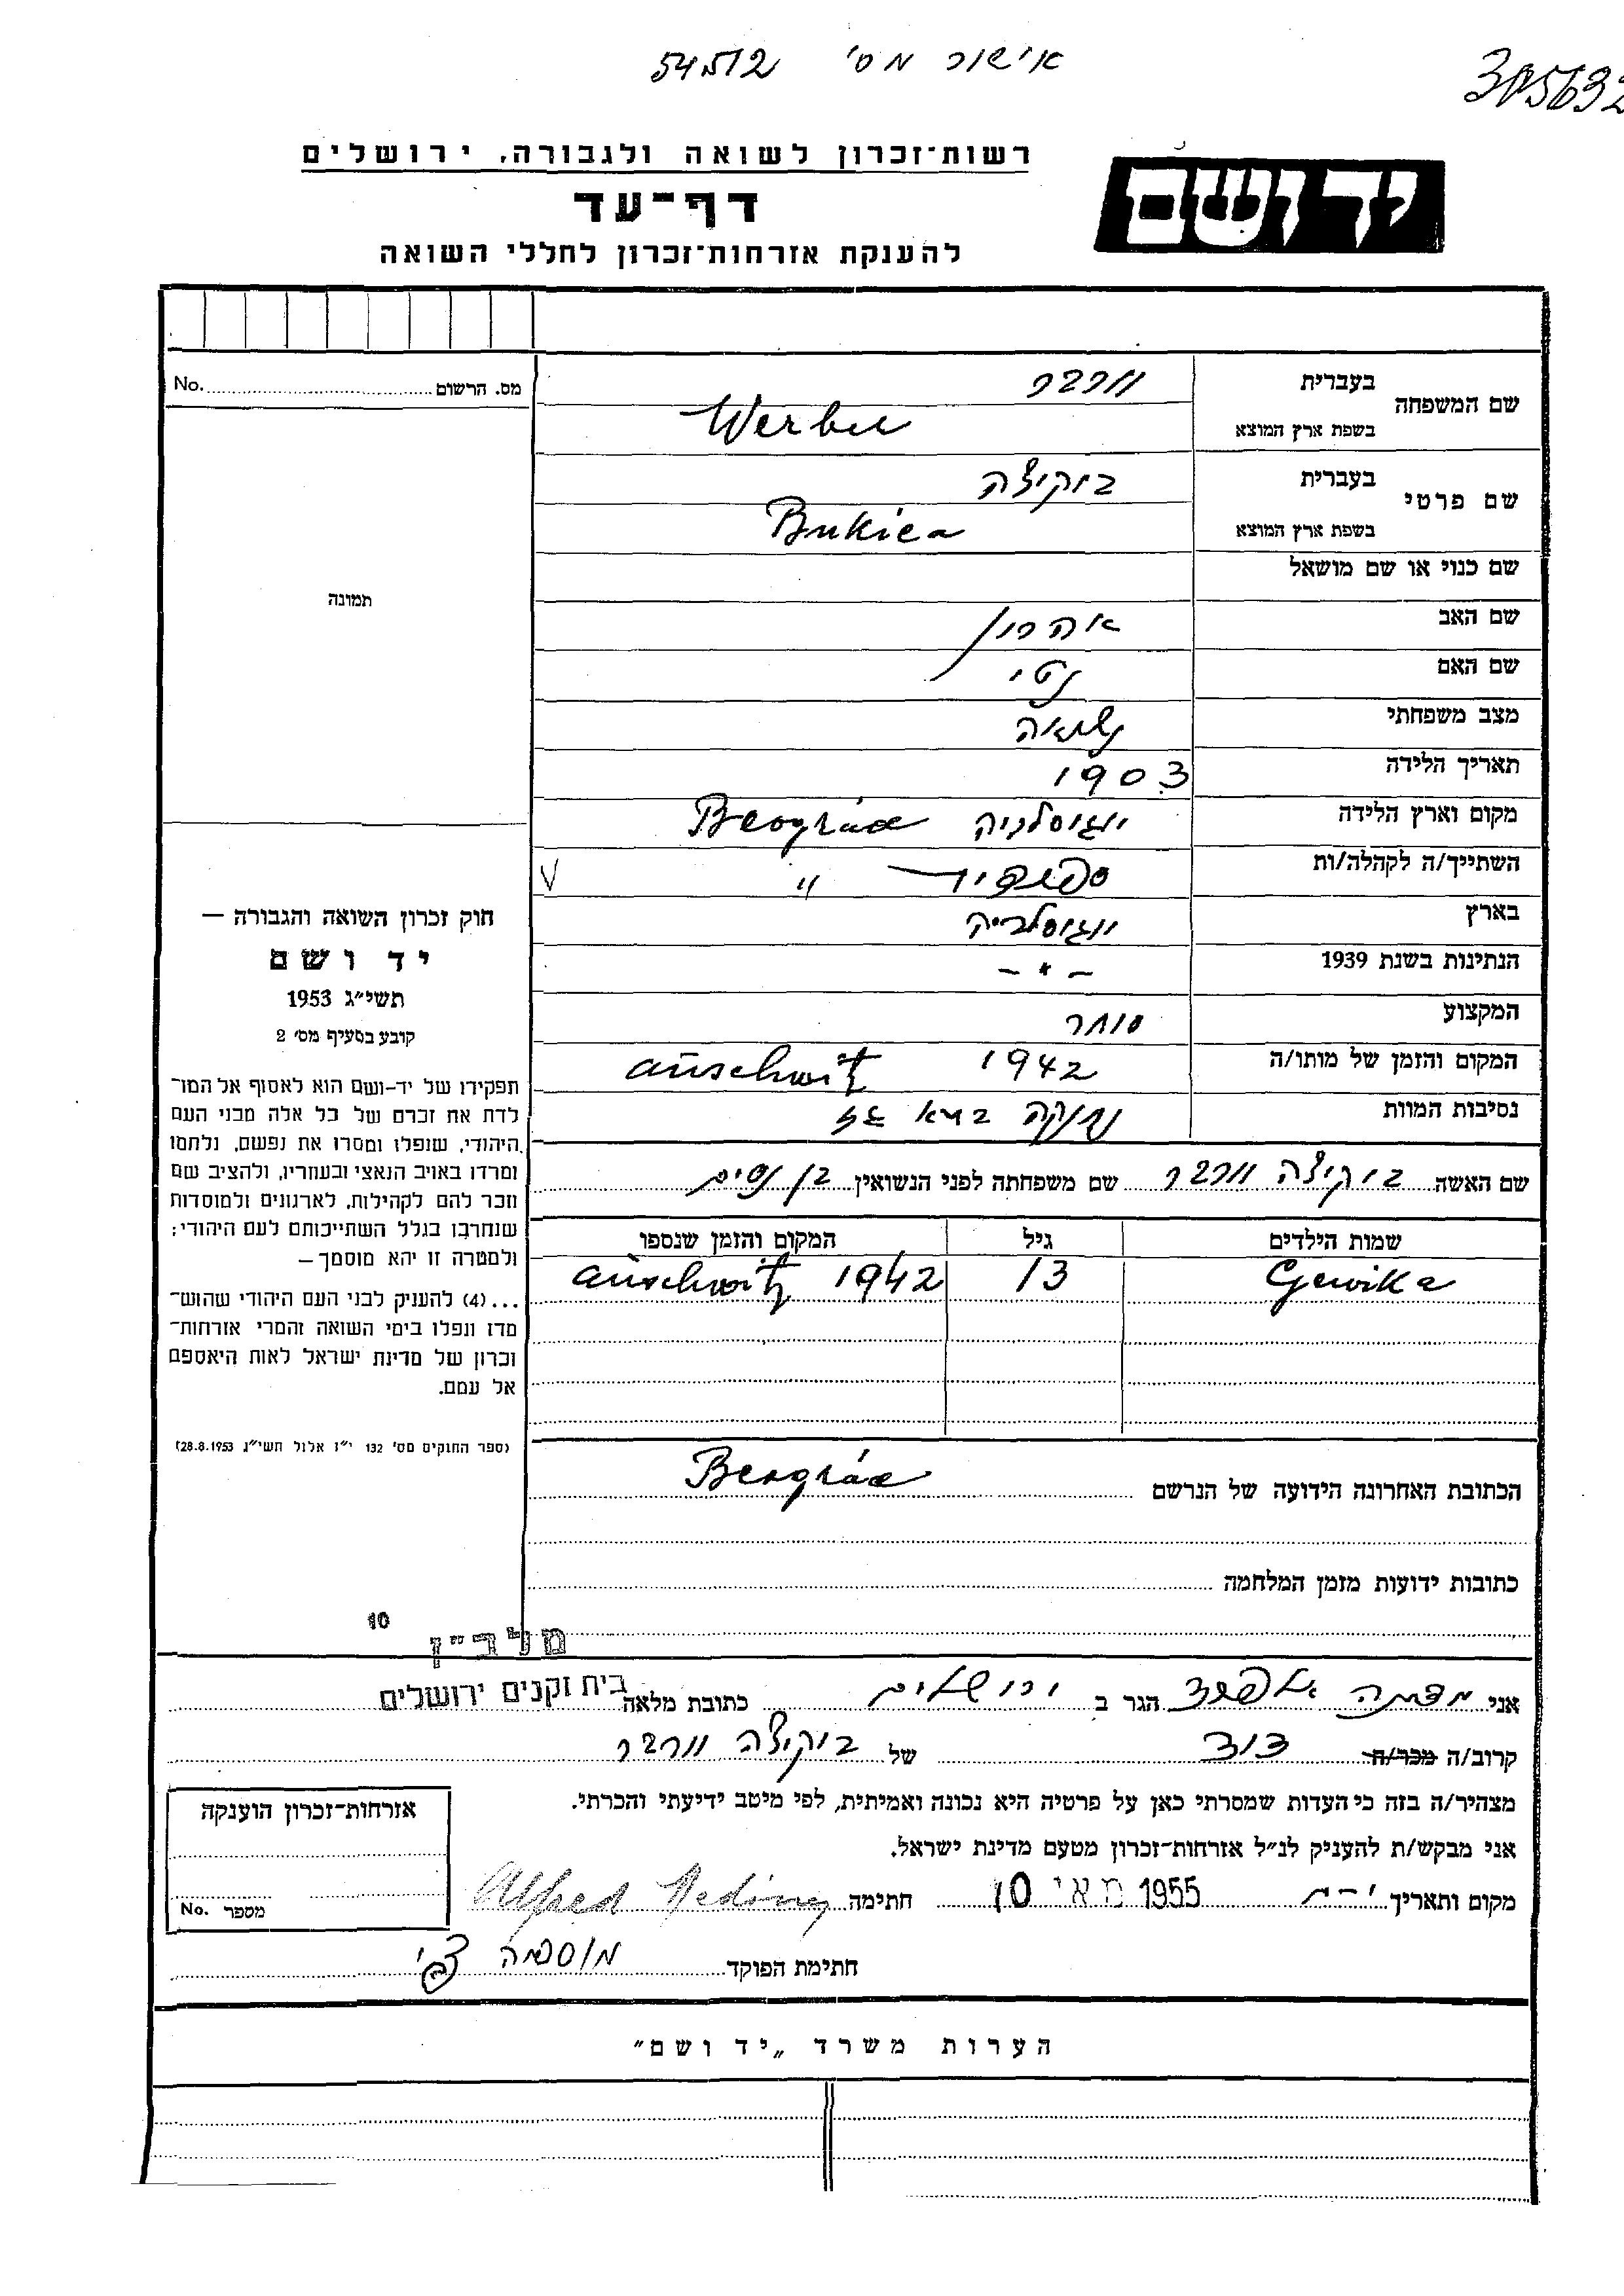 אישור מס' 54512
305632
רשות־זכרון לשואה ולגבורה, ירושלים
יד ושם
דף־עד
להענקת אזרחות־זכרון לחללי השואה
שם המשפחה
בעברית
וורבר
בשפת ארץ המוצא
Werber
שם פרטי
בעברית
בוקיצה
בשפת ארץ המוצא
Bukica
שם כנוי או שם מושאל
שם האב
אהרון
שם האם
נטי
מצב משפחתי
נשואה
תאריך הלידה
1903
מקום וארץ הלידה
יוגוסלביה Beográd
השתייך/ה לקהלה/ות
"
בארץ
יוגוסלביה
הנתינות בשנת 1939
- " -
המקצוע
סוחר
המקום והזמן של מותו/ה
1942 Auschwitz
נסיבות המוות
בתא גז
שם האשה בוקיצה וורבר שם משפחתה לפני הנשואין בן נסים
שמות הילדים גיל המקום והזמן שנספו
13 1942 Auschwitz
הכתובת האחרונה הידועה של הנרשם Beográd
כתובות ידועות מזמן המלחמה
מס. הרשום No.
תמונה
חוק זכרון השואה והגבורה —
יד ושם
תשי״ג 1953
קובע בסעיף מס׳ 2
תפקידו של יד-ושם הוא לאסוף אל המו־
לדת את זכרם של כל אלה מבני העם
היהודי, שנפלו ומסרו את נפשם, נלחמו
ומרדו באויב הנאצי ובעוזריו, ולהציב שם
וזכר להם לקהילות, לארגונים ולמוסדות
שנחרבו בגלל השתייכותם לעם היהודי;
ולמטרה זו יהא מוסמך —
...(4) להעניק לבני העם היהודי שהוש־
מדו ונפלו בימי השואה והמרי אזרחות־
זכרון של מדינת ישראל לאות היאספם
אל עמם.
(ספר החוקים מס׳ 132 י״ז אלול תשי״ג 28.8.1953)
10
מלב״ן
אני הגר ב ירושלים כתובת מלאה בית זקנים ירושלים
קרוב/ה מכר/ה דוד של בוקיצה וורבר
מצהיר/ה בזה כי העדות שמסרתי כאן על פרטיה היא נכונה ואמיתית, לפי מיטב ידיעתי והכרתי.
אני מבקש/ת להעניק לנ״ל אזרחות־זכרון מטעם מדינת ישראל.
מקום ותאריך י-ם 10 מאי 1955 חתימה Alfred
חתימת הפוקד
אזרחות־זכרון הוענקה
מספר No.
הערות משרד „יד ושם״